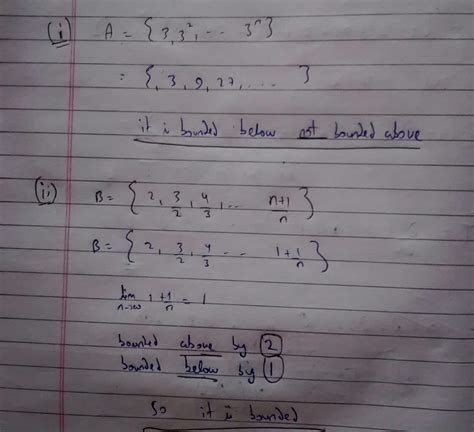 (i) A = { 3, 3², ... 3ⁿ }
= { , 3, 9, 27, .... }
it is bounded below not bounded above
(ii) B = { 2, 3/2, 4/3, ... n+1/n }
B = { 2, 3/2, 4/3 ... 1+1/n }
lim n→∞ 1+1/n = 1
bounded above by 2
bounded below by 1
So it is bounded